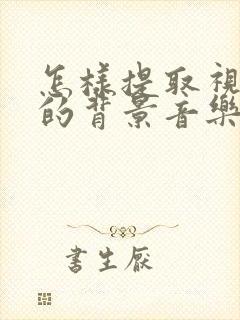 怎樣提取視
的背景音樂
書生厭